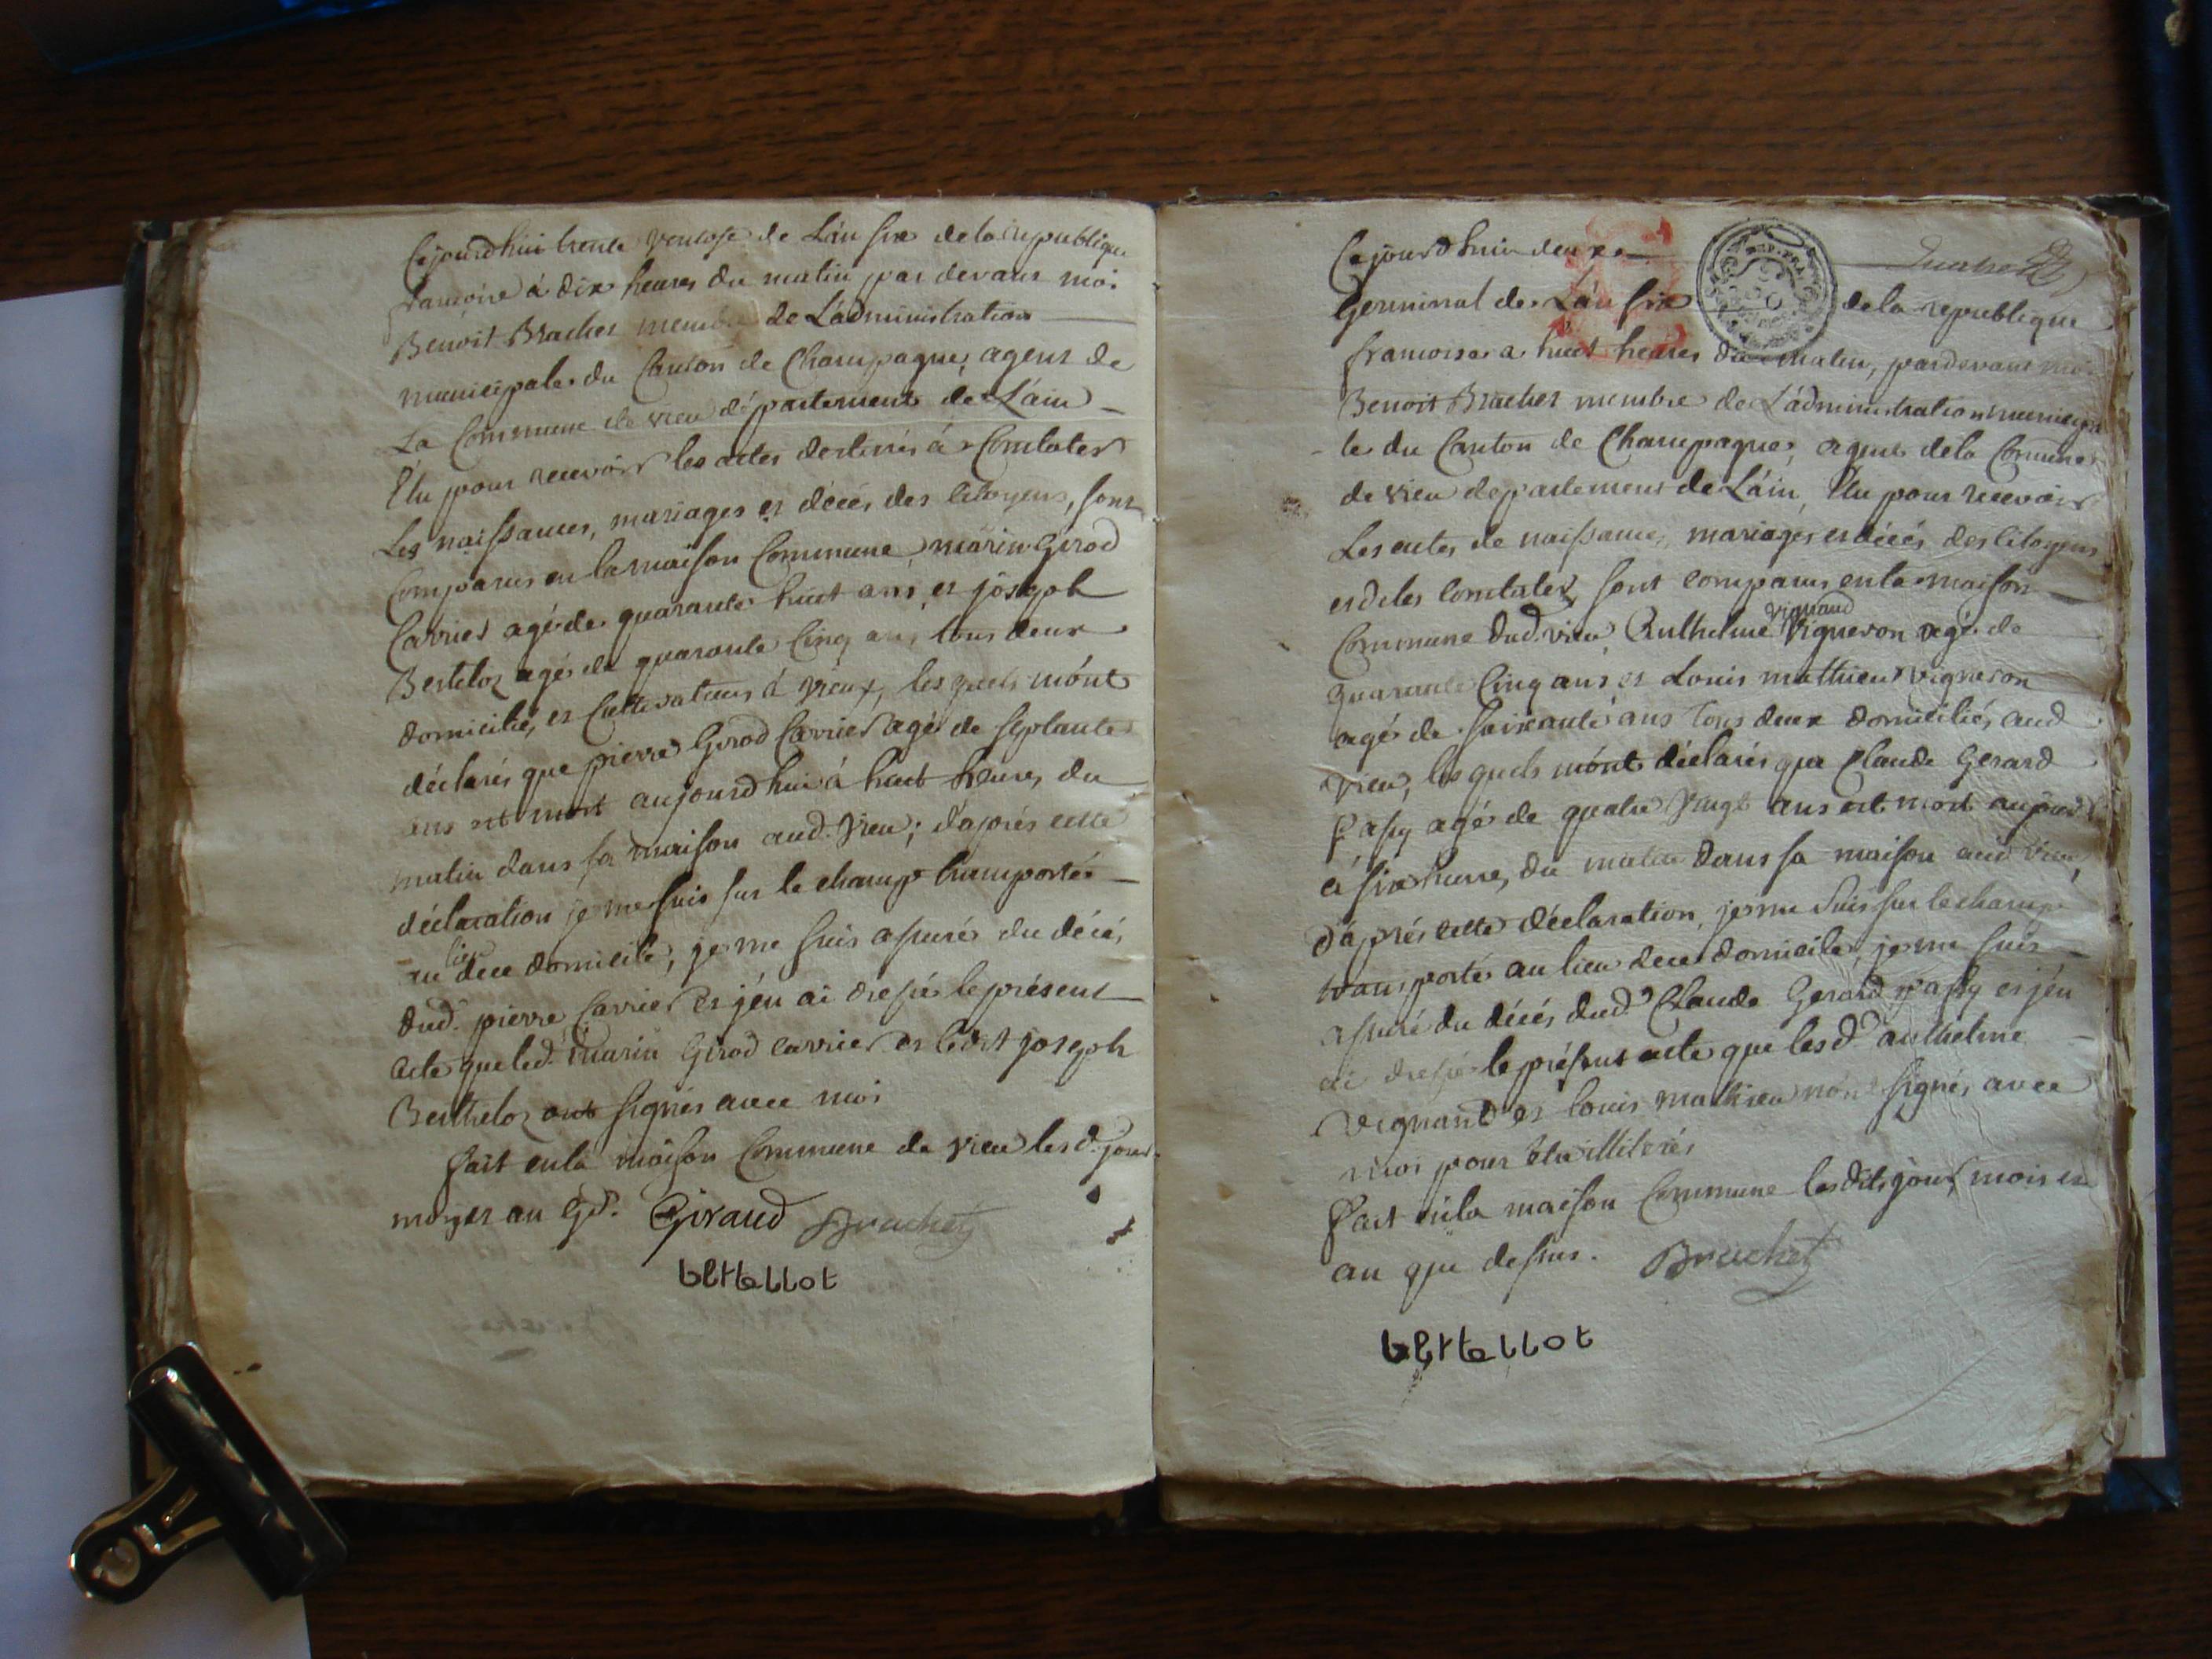 Cejourdhui trente ventose de L'an six de la republique
francoise à dix heures du matin par devant moi
Benoit Brachet membre de L'administration
municipale du Canton de Champagne, agent de
La Commune de vieu département de L'ain
Elu pour recevoir les actes destinés à Constater
Les naissances, mariages et décés des Citoyens, sont
Comparus en la maison Commune marin Girod
Carrier agé de quarante huit ans et joseph
Bertelot agé de quarante Cinq ans, tous deux
domiciliés et Cultivateurs à vieux, les quels m'ont
déclarés que pierre Girod Carrier agé de septante
ans est mort aujourdhui à huit heures du
matin dans sa maison aud. vieu; d'aprés cette
déclaration je me suis sur le champ transporté
au lieu dece domicile, je me suis assuré du décés
dud. pierre Carrier et j'en ai dressé le présent
acte que led. marin Girod carrier et ledit joseph
Berthelot ont signés avec moi
fait en la maison Commune de vieu lesd. jour
mois et an qd. Giraud Brachet
bertellot
Cejourdhui deuxe
Germinal de L'an six de la republique
francoise a huit heures du matin, pardevant moi
Benoit Brachet membre de L'administration municipa
le du Canton de Champagne, agent de la Commune
de vieu departement de L'ain, Elu pour recevoir
Les actes de naissances, mariages et décés des Citoyens
et de les constater, sont comparus en la maison
vignand
Commune dud. vieu Anthelme Vigneron agé de
quarante Cinq ans et Louis mathieu vigneron
agé de soixante ans tous deux domiciliés aud
vieu, les quels m'ont déclarés que Claude Gerard
passy agé de quatre vingt ans est mort aujourd
à six heures du matin dans sa maison aud vieu,
d'aprés cette déclaration, je me suis sur le champ
transporté au lieu dece domicile, je me suis
assuré du décés dud. Claude Gerard passy et j'en
ai dressé le présent acte que lesd. anthelme
vignand et louis mathieu n'ont signés avec
moi pour etre illiterés
Fait en la maison Commune lesdits jour, mois et
an que dessus. Brachet
bertellot